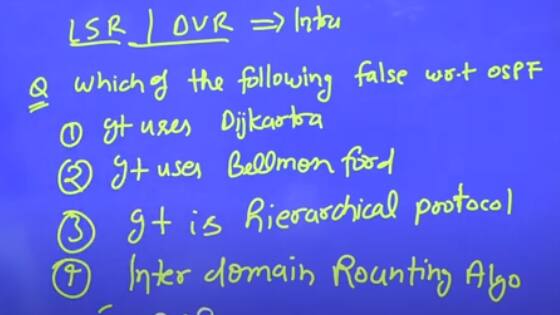 LSR / DVR ⇒ Intra
Q which of the following false w.r.t OSPF
① It uses Dijkartra
② It uses Bellmon ford
③ It is hierarchical protocol
④ Inter domain Rounting Algo